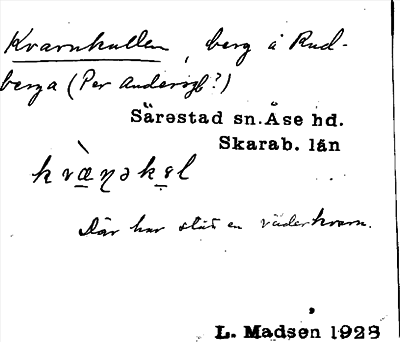 Kvarnkullen, berg å Rud-
berga (Per Andersg?)
Särestad sn. Åse hd.
Skarab. län
kvæ̀ŋəkəl
Där har stått en väderkvarn.
L. Madsen 1928